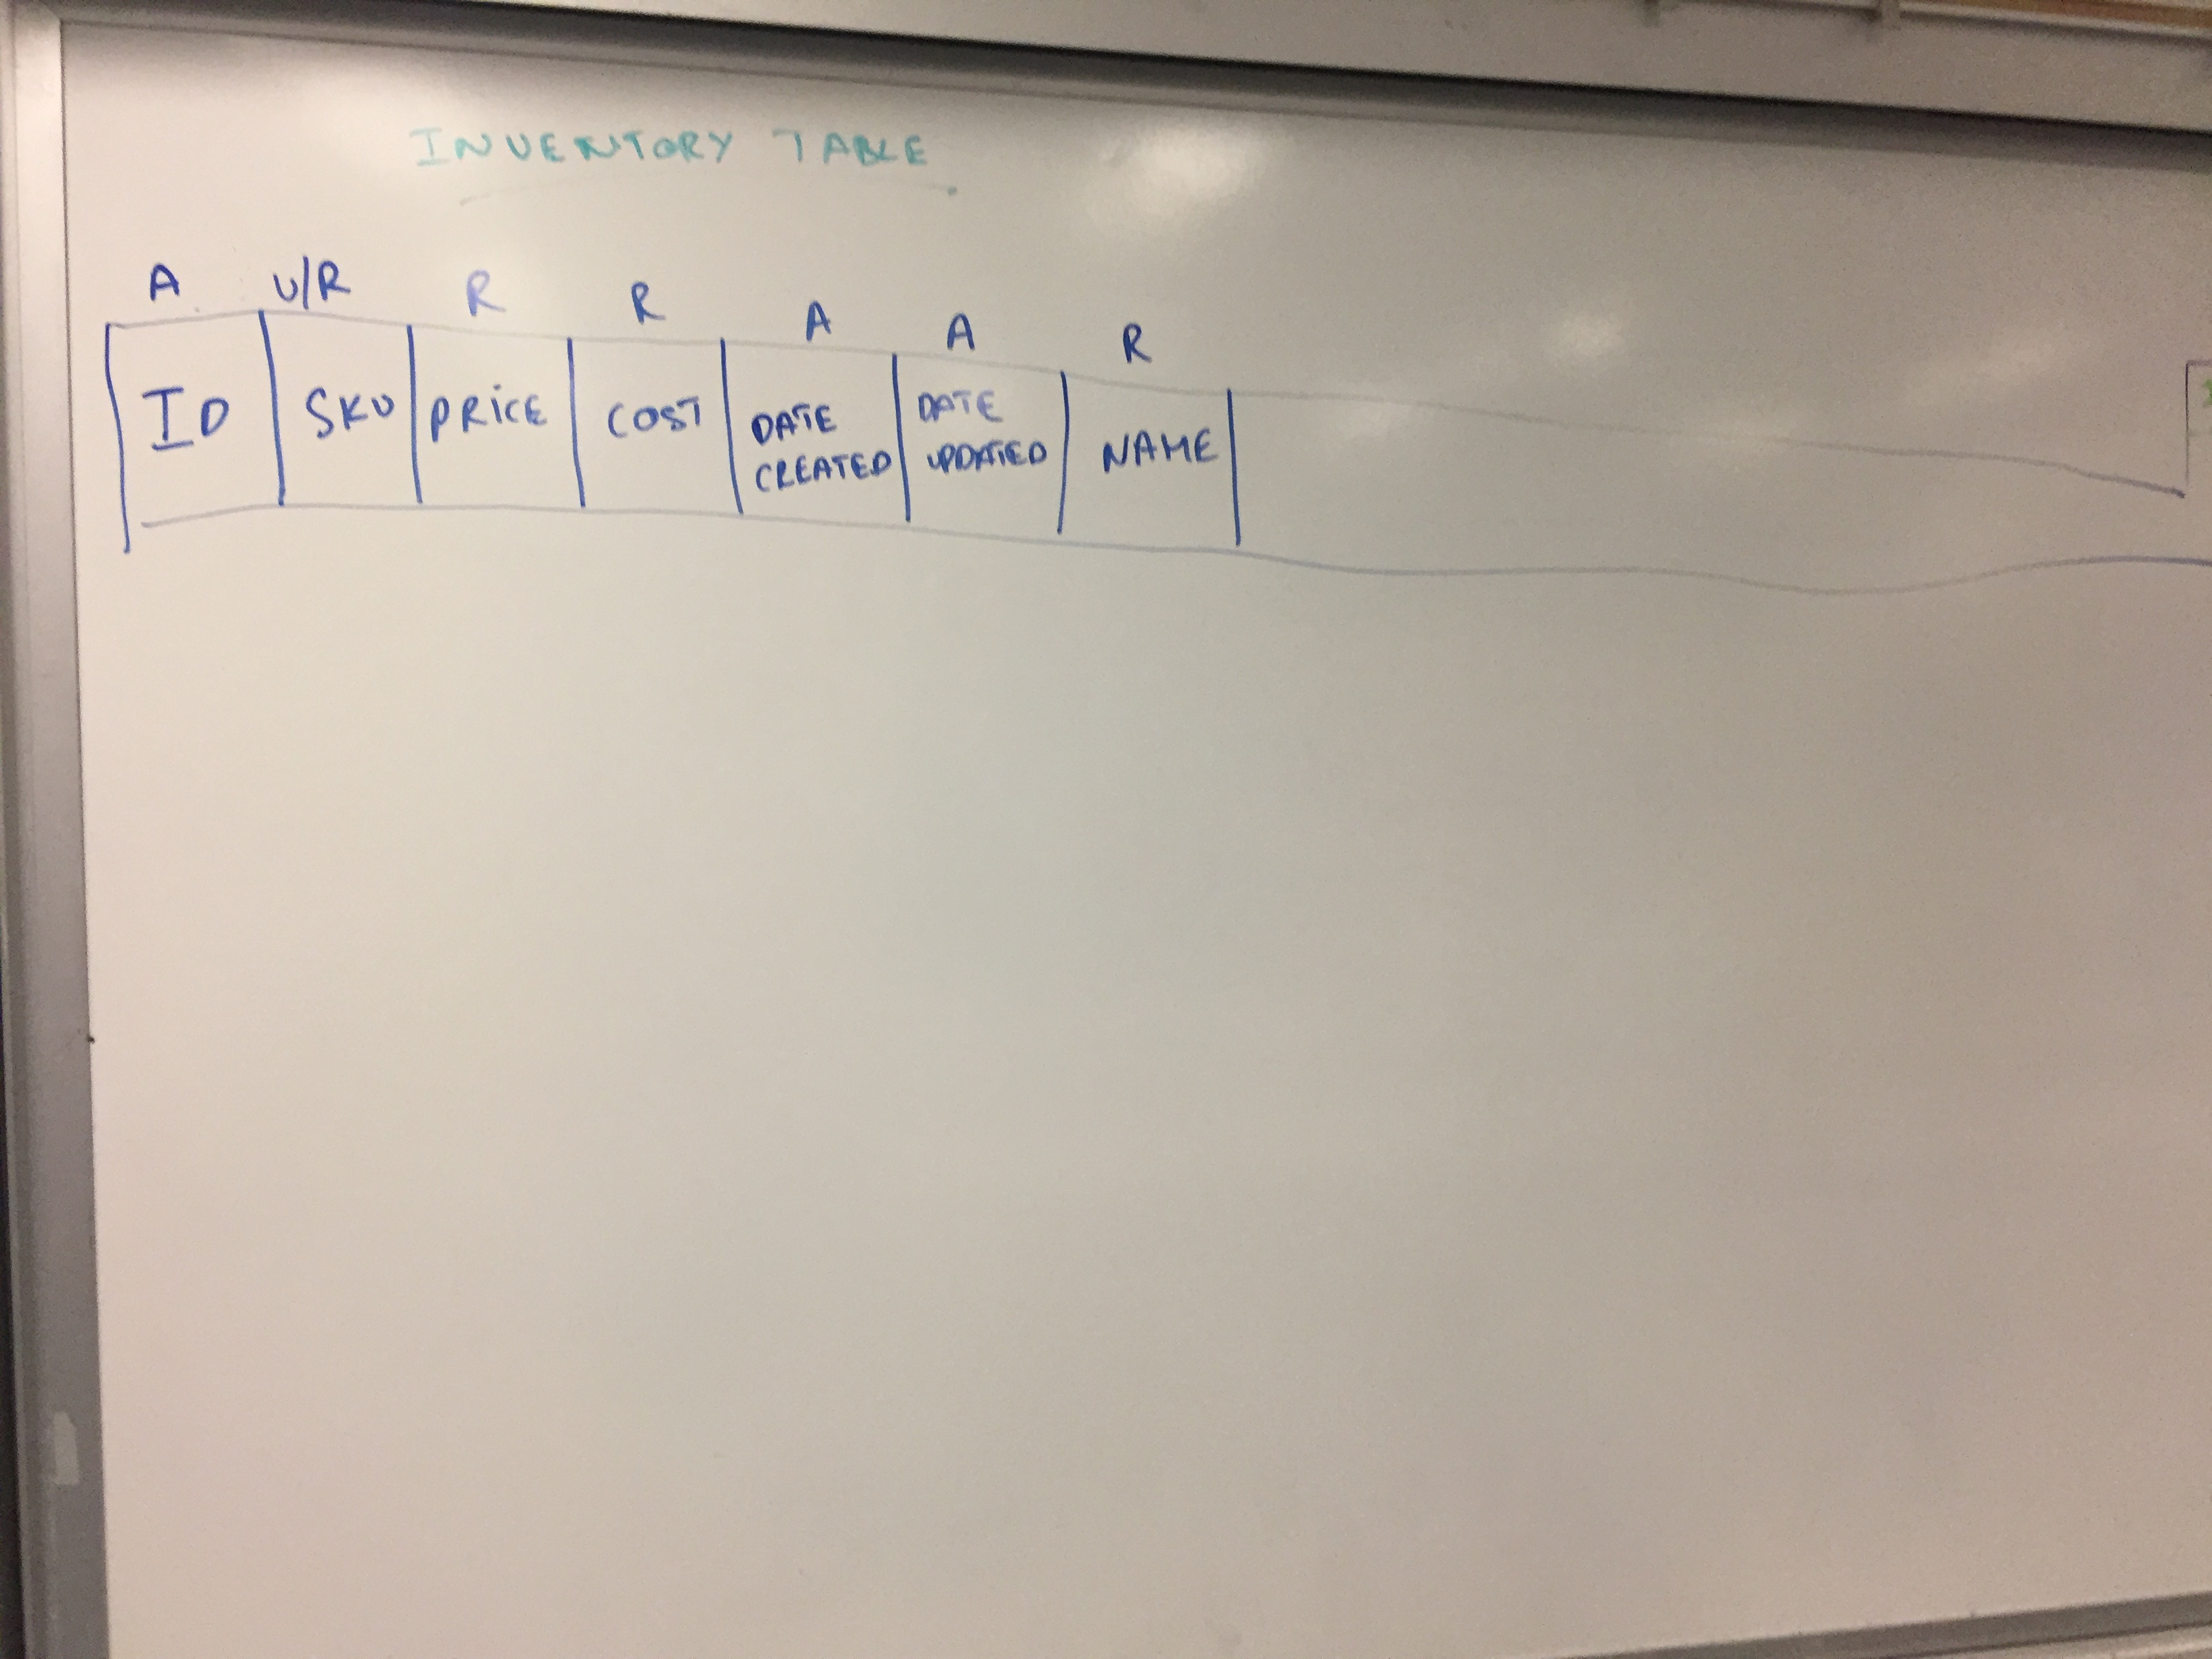 INVENTORY TABLE
A U/R R R A A R
ID SKU PRICE COST DATE CREATED DATE UPDATED NAME